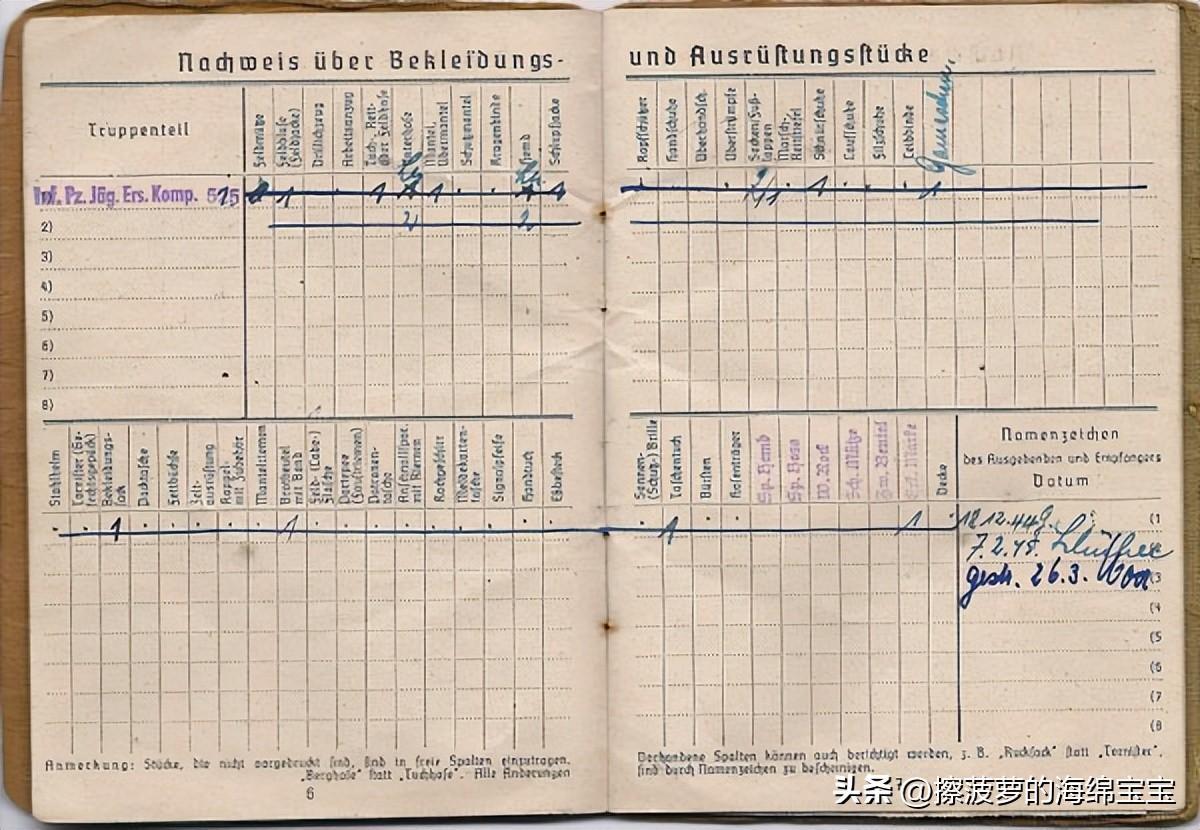 Nachweis über Bekleidungs-
und Ausrüstungsstücke
Truppenteil
Feldmütze
Feldbluse (Feldjacke)
Drillichzeug
Arbeitsanzug
Tuch-, Reit- oder Feldhose
Unterhose
Mantel, Übermantel
Schutzmantel
Kragenbinde
Hemd
Schlupfjacke
Kopfschützer
Handschuhe
Überhandsch.
Überstrümpfe
Socken/Fuß-lappen
Marsch-, Reitstiefel
Schnürschuhe
Laufschuhe
Filzschuhe
Leibbinde
Inf. Pz. Jäg. Ers. Komp. 575
1 1 1 1 1 1
2/1 1 1
2)
2 2
3)
4)
5)
6)
7)
8)
Stahlhelm
Tornister (Ge-fechtsgepäck)
Bekleidungs-sack
Packtasche
Fettbüchse
Zelt-ausrüstung
Kappzel. mit Zubehör
Mantelriemen
Brotbeutel mit Band
Feld- (Labe-) Flasche
Kochgeschirr
Meldekarten-tasche
Signalpfeife
Handtuch
Eßbesteck
Sonnen- (Schutz-) Brille
Taschentuch
Bürsten
Hosenträger
Sp. Hemd
Sp. Hose
W. Rock
Sch. Mütze
Erk. Marke
Decke
Namenzeichen
des Ausgebenden und Empfängers
Datum
1 1
1 1
12.12.44
(1
7.2.45.
gestr. 26.3.
(3
(4
(5
(6
(7
(8
Anmerkung: Stücke, die nicht vorgedruckt sind, sind in freie Spalten einzutragen.
"Berghose" statt "Tuchhose". Alle Änderungen
6
Vorhandene Spalten können auch berichtigt werden, z. B. "Rucksack" statt "Tornister",
sind durch Namenzeichen zu bescheinigen.
7
头条 @擦菠萝的海绵宝宝